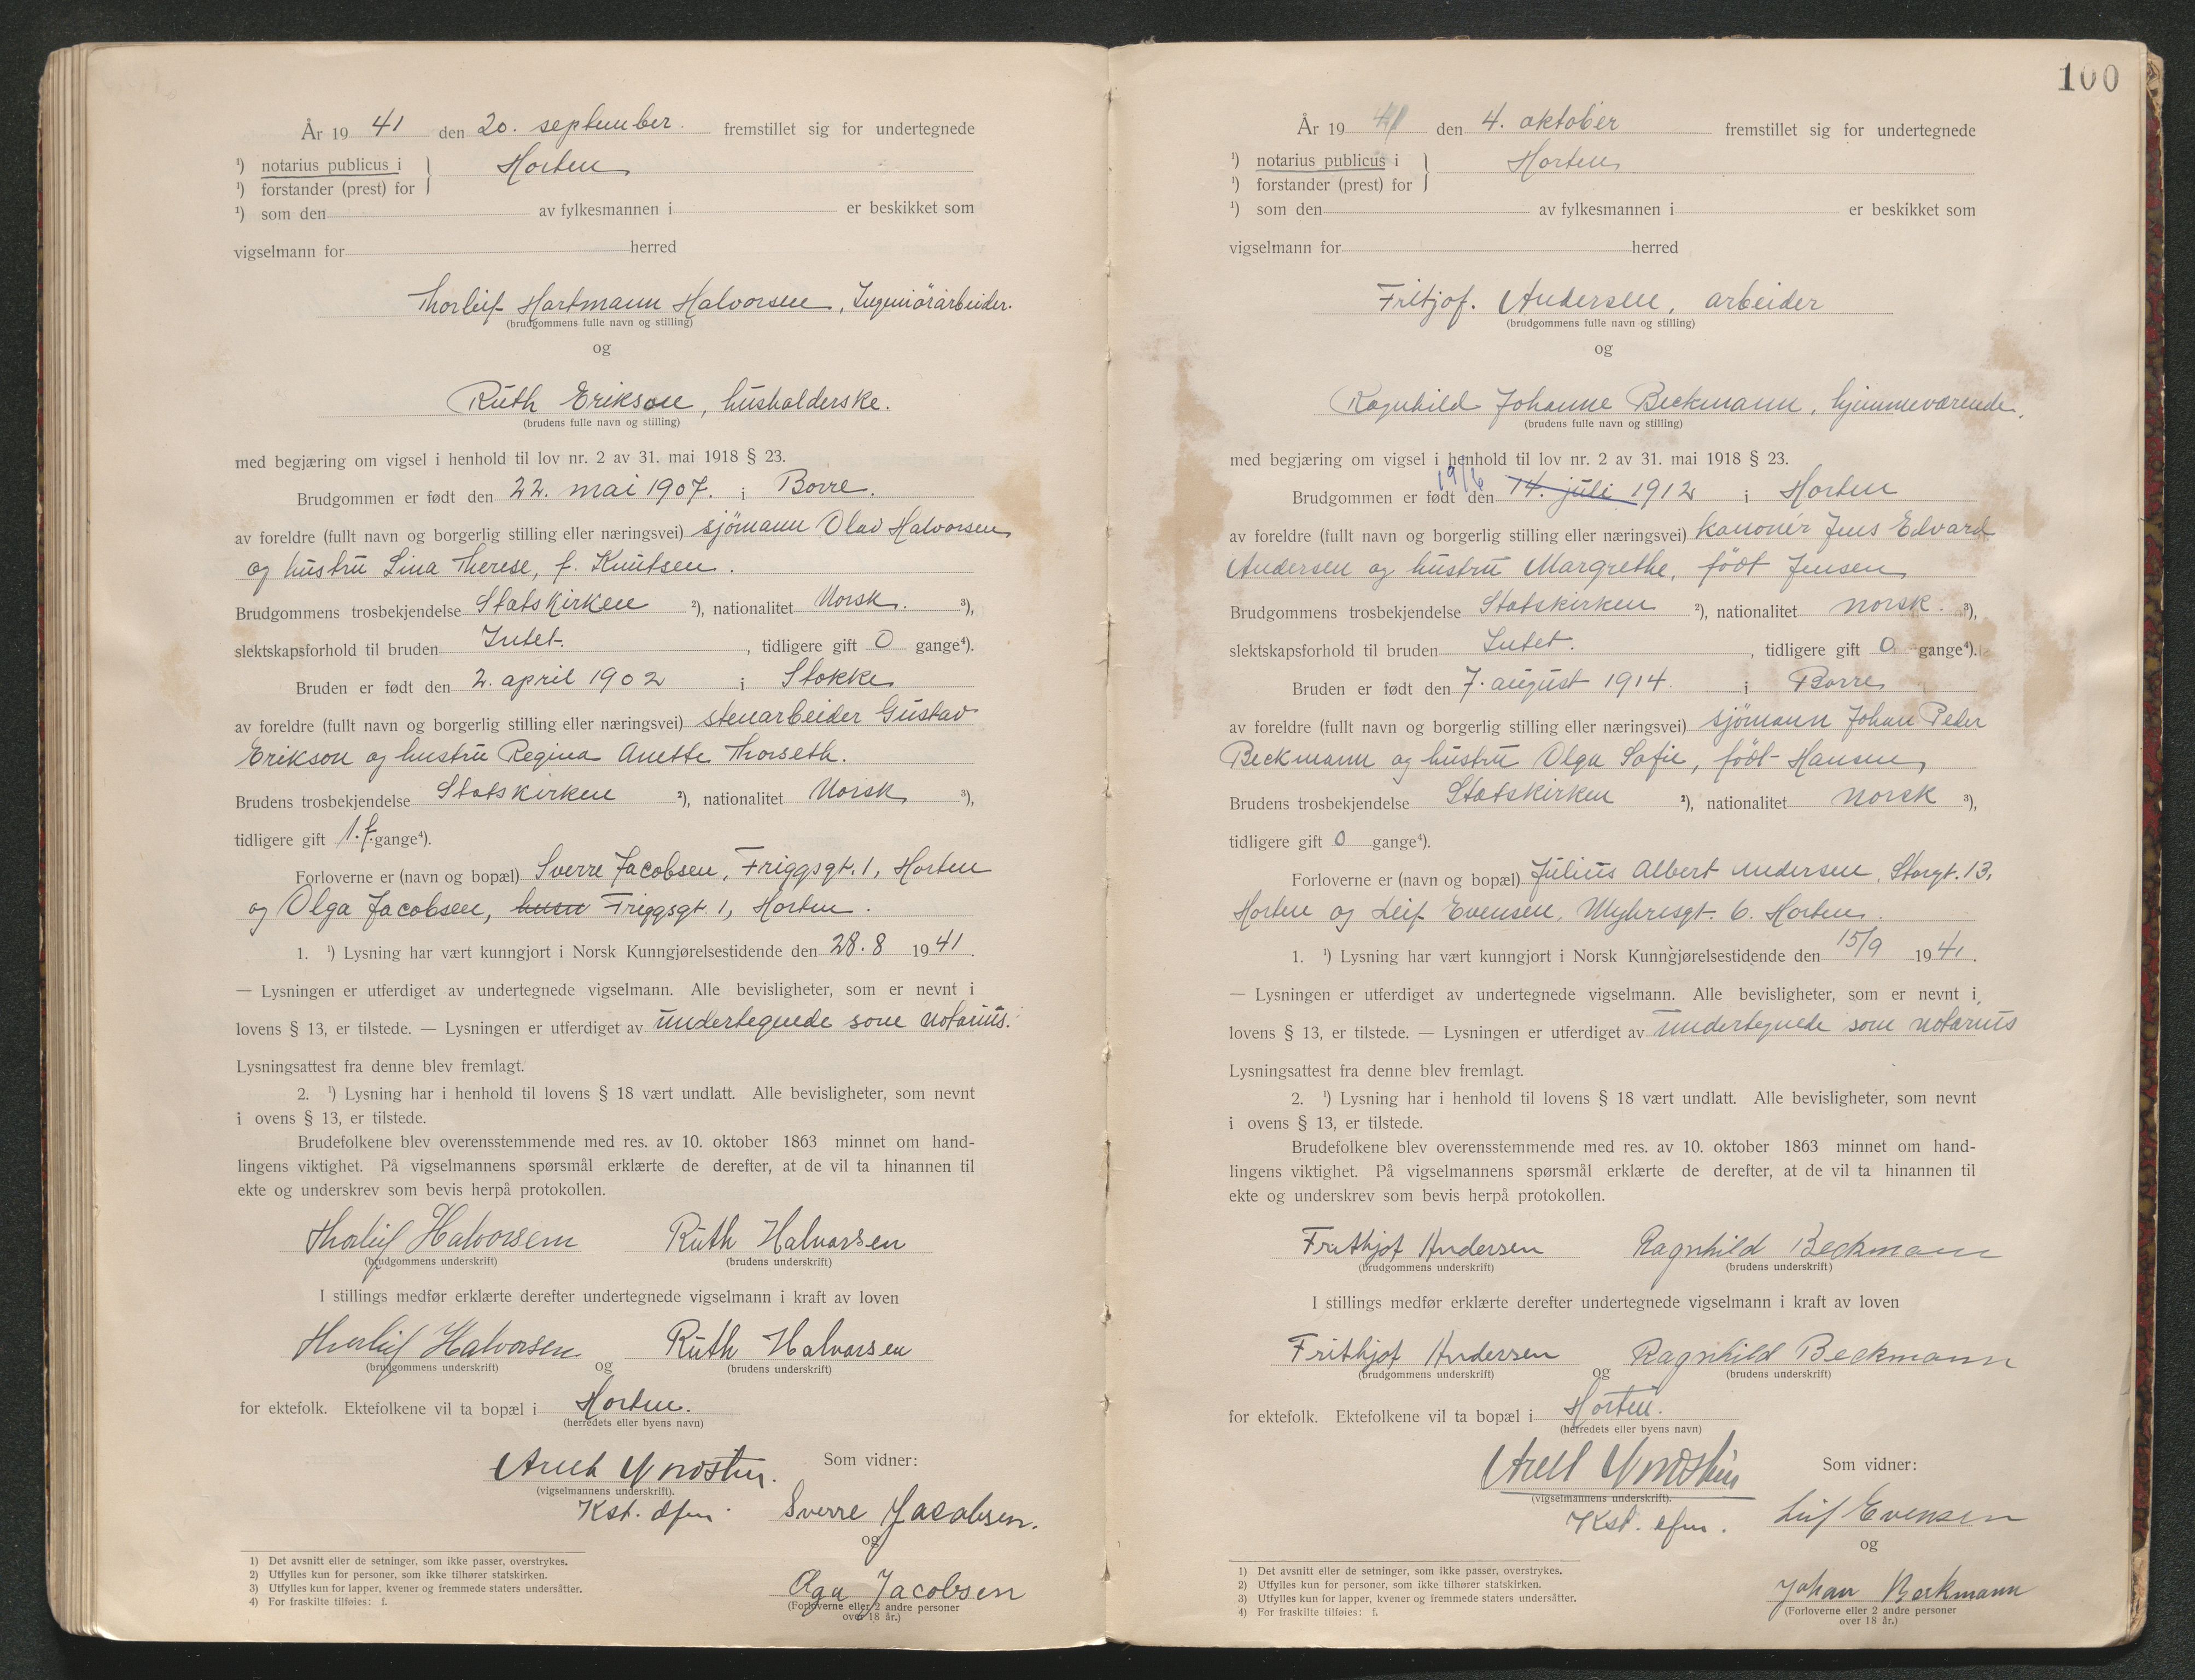 År 1941 den 20. september. fremstillet sig for undertegnede
¹) notarius publicus i } Horten
¹) forstander (prest) for
¹) som den av fylkesmannen i er beskikket som
vigselmann for herred
Thorleif Hartmann Halvorsen, Ingeniörarbeider.
(brudgommens fulle navn og stilling)
og
Ruth Erikson, husholderske.
(brudens fulle navn og stilling)
med begjæring om vigsel i henhold til lov nr. 2 av 31. mai 1918 § 23.
Brudgommen er født den 22. mai 1907. i Borre.
av foreldre (fullt navn og borgerlig stilling eller næringsvei) sjömann Olav Halvorsen
og hustru Lina Therese, f. Knutsen.
Brudgommens trosbekjendelse Statskirken ²), nationalitet Norsk. ³),
slektskapsforhold til bruden Intet. , tidligere gift 0 gange⁴).
Bruden er født den 2. april 1902 i Stokke
av foreldre (fullt navn og borgerlig stilling eller næringsvei) stenarbeider Gustav
Erikson og hustru Regina Anette Thorseth.
Brudens trosbekjendelse Statskirken ²), nationalitet Norsk ³),
tidligere gift 1.f. gange⁴).
Forloverne er (navn og bopæl) Sverre Jacobsen, Friggsgt. 1, Horten
og Olga Jacobsen, Friggsgt. 1, Horten.
1. ¹) Lysning har vært kunngjort i Norsk Kunngjørelsestidende den 28.8 1941.
— Lysningen er utferdiget av undertegnede vigselmann. Alle bevisligheter, som er nevnt i
lovens § 13, er tilstede. — Lysningen er utferdiget av undertegnede som notarius.
Lysningsattest fra denne blev fremlagt.
2. ¹) Lysning har i henhold til lovens § 18 vært undlatt. Alle bevisligheter, som nevnt
i ovens § 13, er tilstede.
Brudefolkene blev overensstemmende med res. av 10. oktober 1863 minnet om hand-
lingens viktighet. På vigselmannens spørsmål erklærte de derefter, at de vil ta hinannen til
ekte og underskrev som bevis herpå protokollen.
Thorleif Halvorsen Ruth Halvorsen
(brudgommens underskrift) (brudens underskrift)
I stillings medfør erklærte derefter undertegnede vigselmann i kraft av loven
Thorleif Halvorsen og Ruth Halvorsen
(brudgommens underskrift) (brudens underskrift)
for ektefolk. Ektefolkene vil ta bopæl i Horten.
(herredets eller byens navn)
Som vidner:
(vigselmannens underskrift).
Kst. Sverre Jacobsen.
og
Olga Jacobsen
(Forloverne eller 2 andre personer
over 18 år.)
1) Det avsnitt eller de setninger, som ikke passer, overstrykes.
2) Utfylles kun for personer, som ikke tilhører statskirken.
3) Utfylles kun for lapper, kvener og fremmede staters undersåtter.
4) For fraskilte tilføies: f.
100
År 1941 den 4. oktober fremstillet sig for undertegnede
¹) notarius publicus i } Horten
¹) forstander (prest) for
¹) som den av fylkesmannen i er beskikket som
vigselmann for herred
Fritjof. Andersen, arbeider
(brudgommens fulle navn og stilling)
og
Ragnhild Johanne Beckmann, hjemmeværende.
(brudens fulle navn og stilling)
med begjæring om vigsel i henhold til lov nr. 2 av 31. mai 1918 § 23.
19/6
Brudgommen er født den 14. juli 1912 i Horten
av foreldre (fullt navn og borgerlig stilling eller næringsvei) kanonér Jens Edvard
Andersen og hustru Margrethe, född Jensen
Brudgommens trosbekjendelse Statskirken ²), nationalitet norsk. ³),
slektskapsforhold til bruden Intet. , tidligere gift 0 gange⁴).
Bruden er født den 7. august 1914. i Borre
av foreldre (fullt navn og borgerlig stilling eller næringsvei) sjömann Johan Peder
Beckmann og hustru Olga Sofie, född Hansen
Brudens trosbekjendelse Statskirken ²), nationalitet norsk ³),
tidligere gift 0 gange⁴).
Forloverne er (navn og bopæl) Julius Albert Andersen, Storgt. 13,
Horten og Leif Evensen, Myhresgt. 6. Horten.
1. ¹) Lysning har vært kunngjort i Norsk Kunngjørelsestidende den 15/9 1941.
— Lysningen er utferdiget av undertegnede vigselmann. Alle bevisligheter, som er nevnt i
lovens § 13, er tilstede. — Lysningen er utferdiget av undertegnede som notarius
Lysningsattest fra denne blev fremlagt.
2. ¹) Lysning har i henhold til lovens § 18 vært undlatt. Alle bevisligheter, som nevnt
i ovens § 13, er tilstede.
Brudefolkene blev overensstemmende med res. av 10. oktober 1863 minnet om hand-
lingens viktighet. På vigselmannens spørsmål erklærte de derefter, at de vil ta hinannen til
ekte og underskrev som bevis herpå protokollen.
Frithjof Andersen Ragnhild Beckmann
(brudgommens underskrift) (brudens underskrift)
I stillings medfør erklærte derefter undertegnede vigselmann i kraft av loven
Frithjof Andersen og Ragnhild Beckmann
(brudgommens underskrift) (brudens underskrift)
for ektefolk. Ektefolkene vil ta bopæl i Horten.
(herredets eller byens navn)
Som vidner:
(vigselmannens underskrift).
Kst. Leif Evensen
og
Johan Beckmann
(Forloverne eller 2 andre personer
over 18 år.)
1) Det avsnitt eller de setninger, som ikke passer, overstrykes.
2) Utfylles kun for personer, som ikke tilhører statskirken.
3) Utfylles kun for lapper, kvener og fremmede staters undersåtter.
4) For fraskilte tilføies: f.